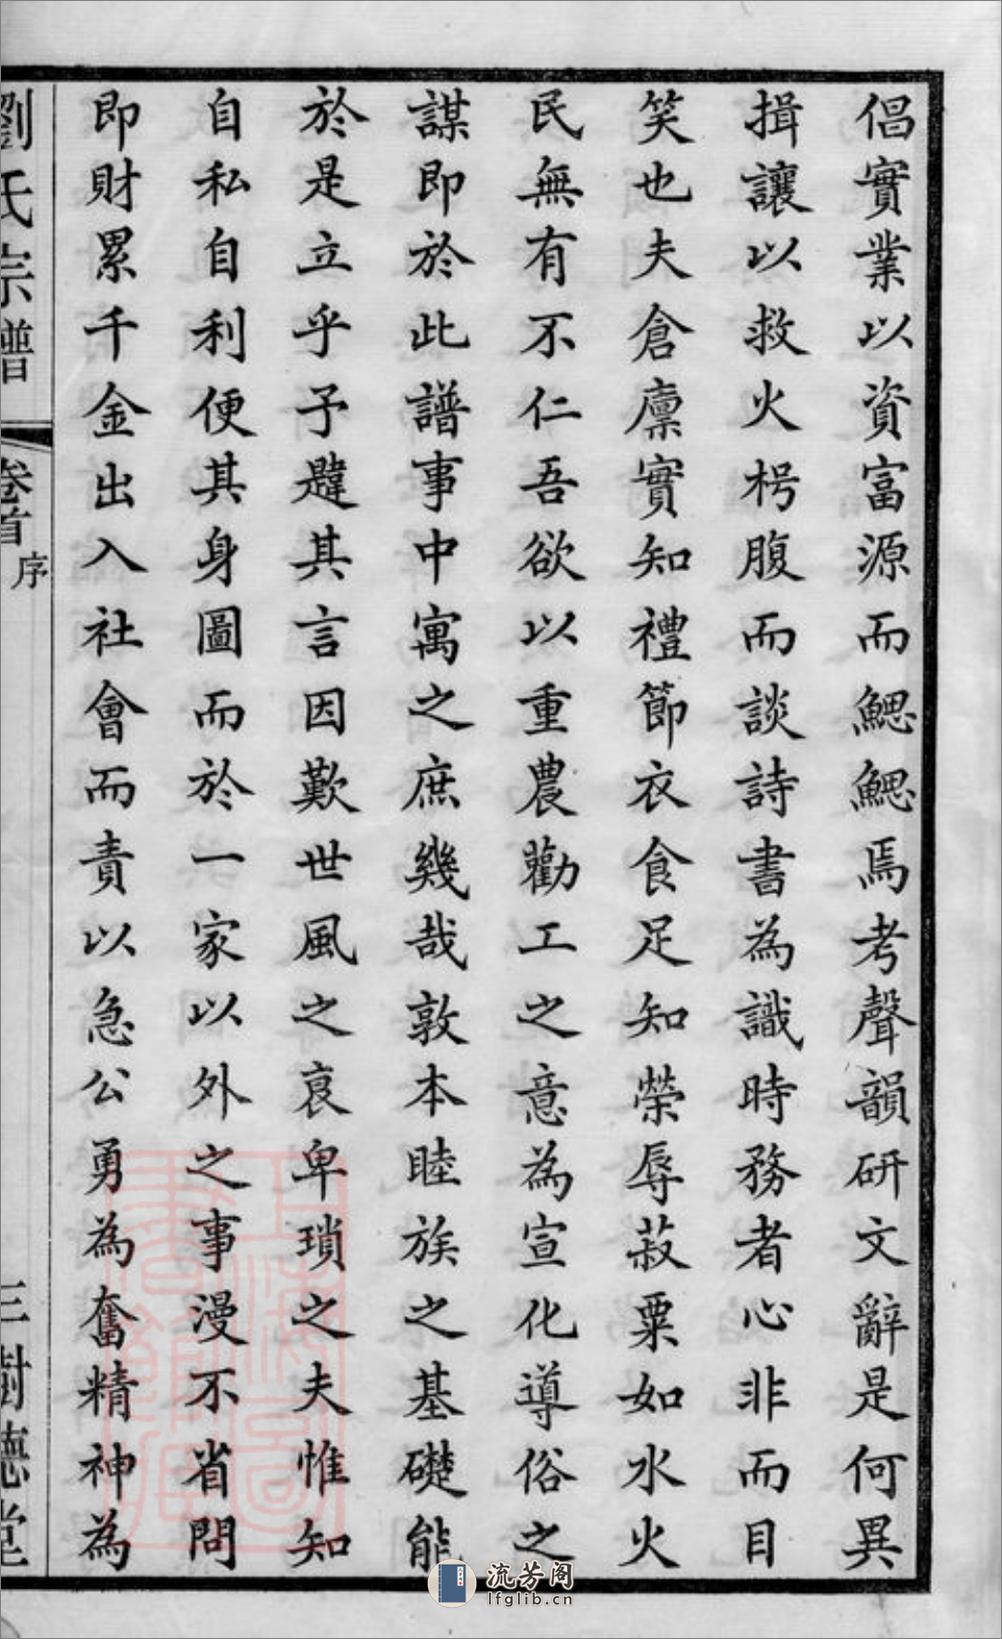 倡實業以資富源而鰓鰓焉考聲韻研文辭是何異
揖讓以救火枵腹而談詩書為識時務者心非而目
笑也夫倉廩實知禮節衣食足知榮辱菽粟如水火
民無有不仁吾欲以重農勸工之意為宣化導俗之
謀即於此譜事中寓之庶幾哉敦本睦族之基礎能
於是立乎予韙其言因歎世風之衰卑瑣之夫惟知
自私自利便其身圖而於一家以外之事漫不省問
即財累千金出入社會而責以急公勇為奮精神為
劉氏宗譜 卷首 序 三 樹德堂
流芳阁
lfglib.cn